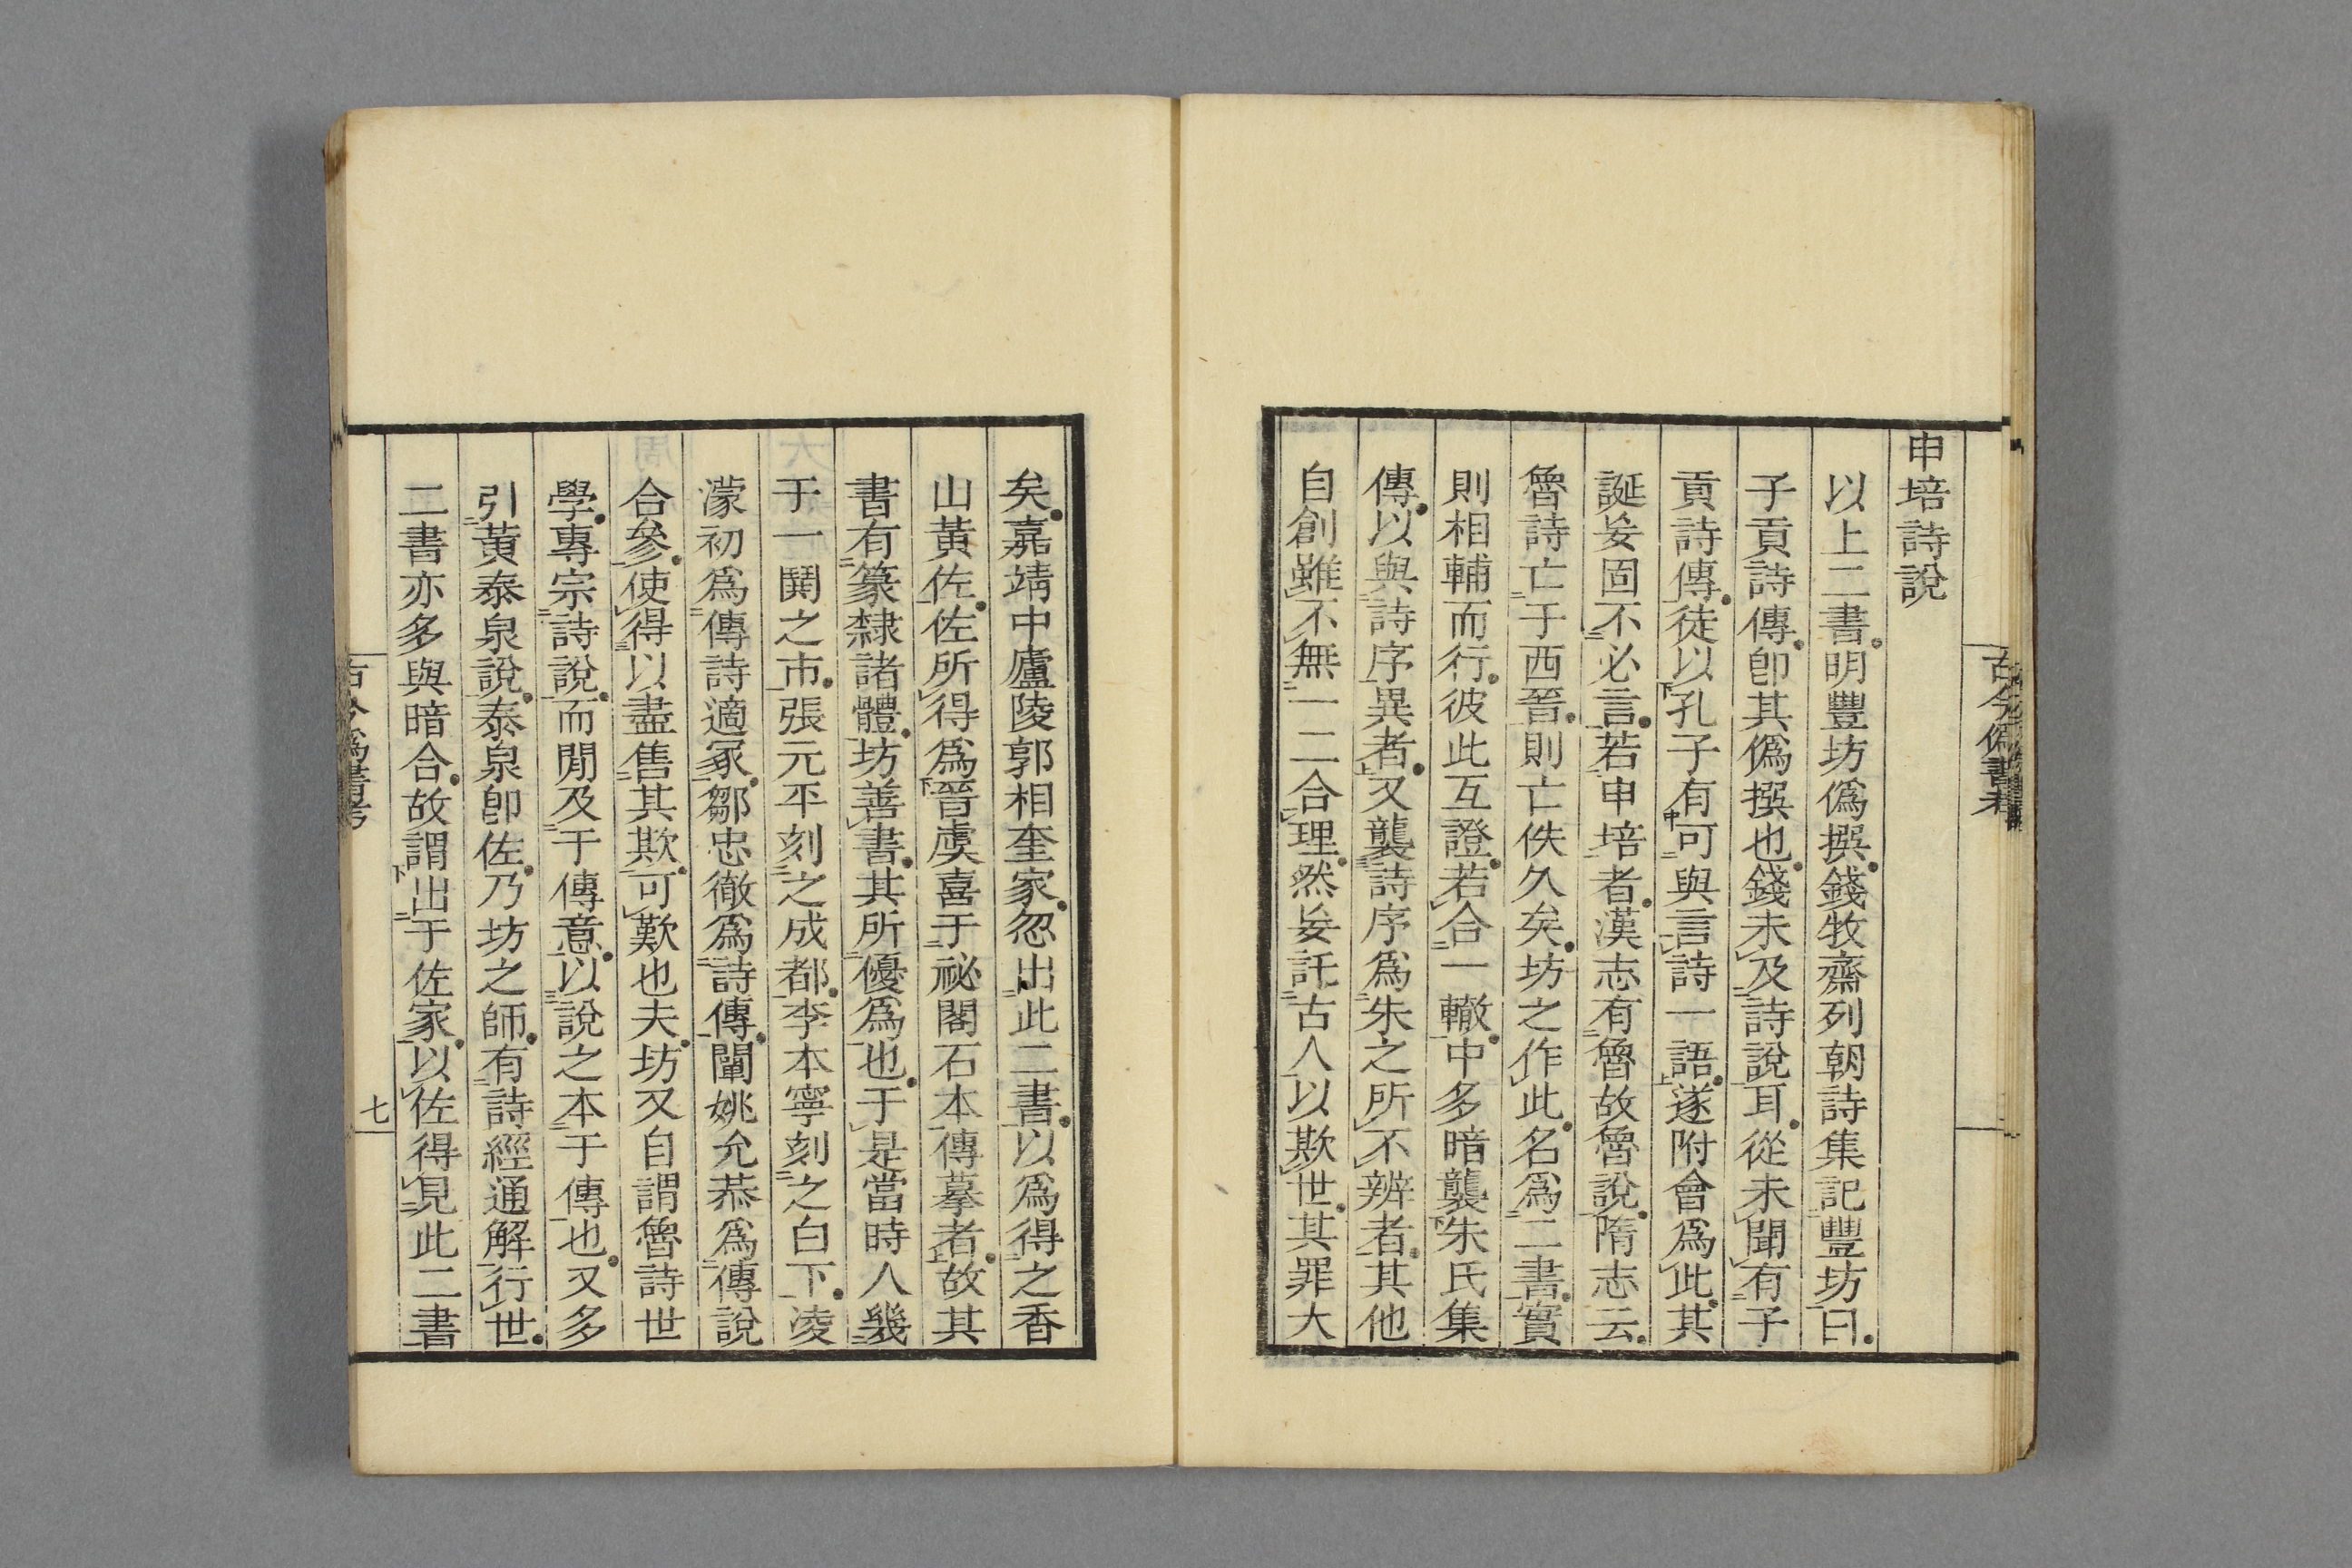 古今僞書考
申培詩說
以上二書明豐坊僞撰錢牧齋列朝詩集記豐坊曰
子貢詩傳卽其僞撰也錢未及詩說耳從未聞有子
貢詩傳徒以孔子有可與言詩一語遂附會爲此其
誕妄固不必言若申培者漢志有魯故魯說隋志云
魯詩亡于西晉則亡佚久矣坊之作此名爲二書實
則相輔而行彼此互證若合一轍中多暗襲朱氏集
傳以與詩序異者又襲詩序爲朱之所不辨者其他
自創雖不無一二合理然妄託古人以欺世其罪大
矣嘉靖中廬陵郭相奎家忽出此二書以爲得之香
山黃佐佐所得爲晉虞喜于祕閣石本傳摹者故其
書有篆隸諸體坊善書其所優爲也于是當時人幾
于一鬨之市張元平刻之成都李本寧刻之白下凌
濛初爲傳詩適冢鄒忠徹爲詩傳闡姚允恭爲傳說
合參使得以盡售其欺可歎也夫坊又自謂魯詩世
學專宗詩說而閒及于傳意以說之本于傳也又多
引黃泰泉說泰泉卽佐乃坊之師有詩經通解行世
二書亦多與暗合故謂出于佐家以佐得見此二書
古今僞書考
七